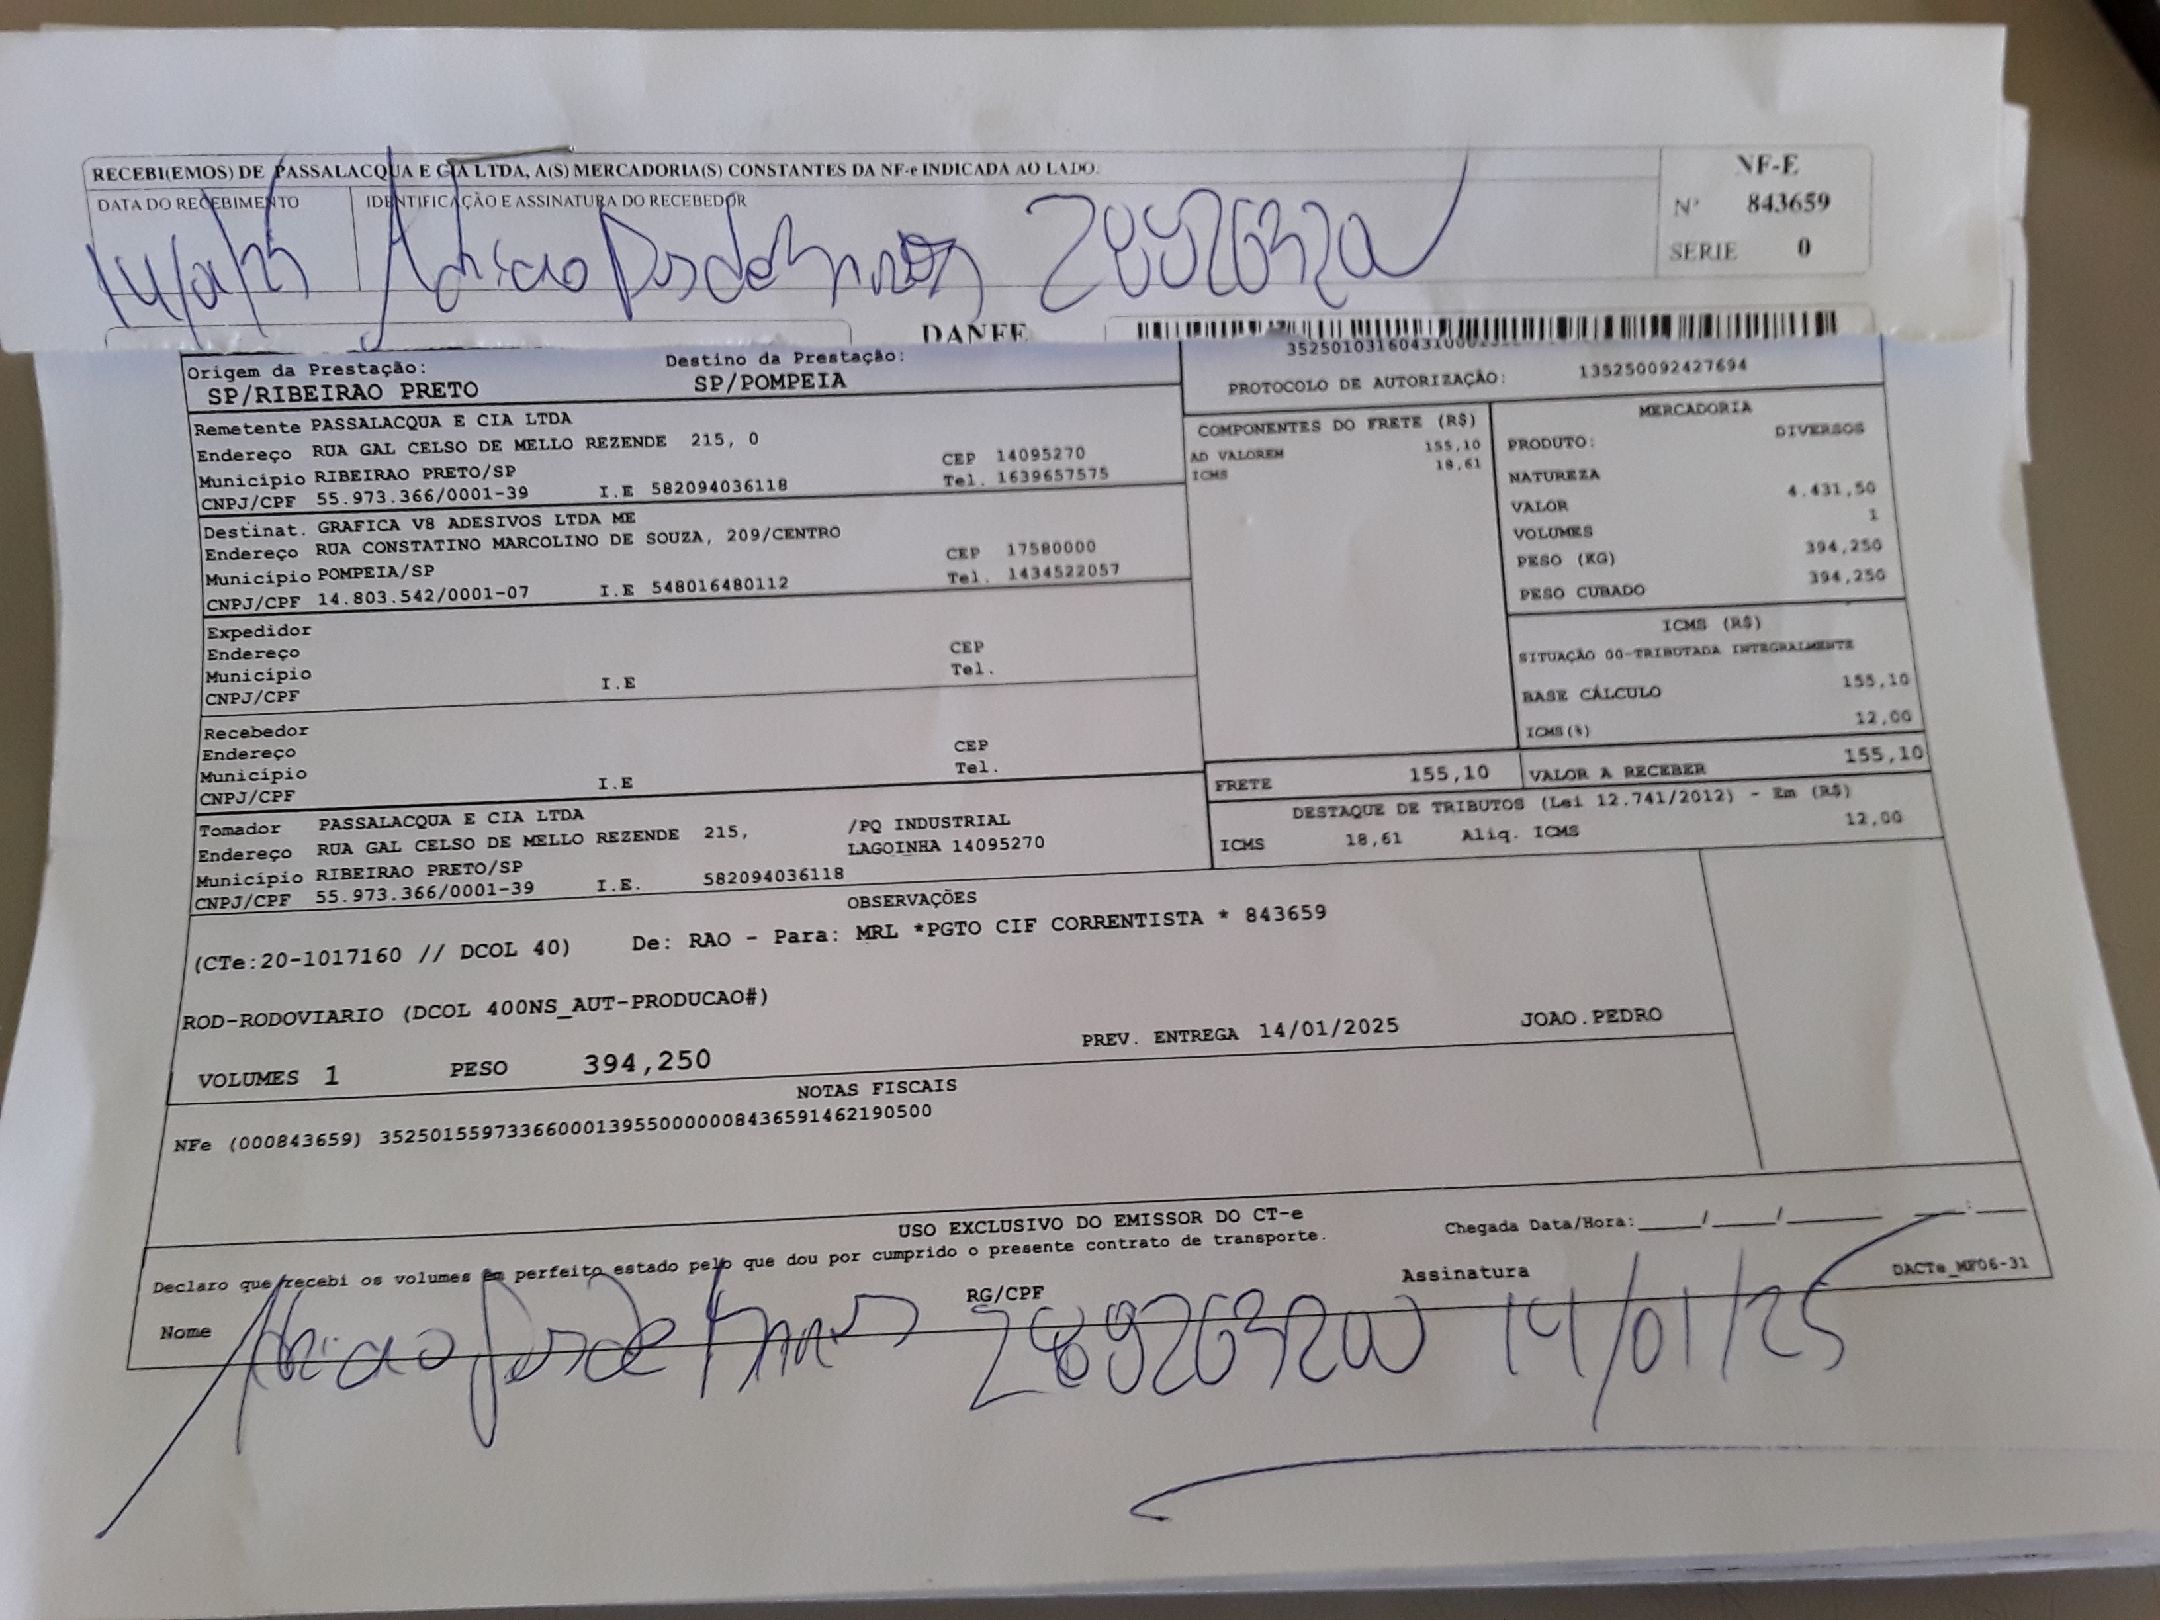 RECEBI(EMOS) DE PASSALACQUA E CIA LTDA, A(S) MERCADORIA(S) CONSTANTES DA NF-e INDICADA AO LADO.
DATA DO RECEBIMENTO IDENTIFICAÇÃO E ASSINATURA DO RECEBEDOR
NF-E
Nº 843659
SERIE 0
DANFE
Origem da Prestação: Destino da Prestação:
SP/RIBEIRAO PRETO SP/POMPEIA
PROTOCOLO DE AUTORIZAÇÃO: 135250092427694
Remetente PASSALACQUA E CIA LTDA
Endereço RUA GAL CELSO DE MELLO REZENDE 215, 0
Município RIBEIRAO PRETO/SP CEP 14095270
CNPJ/CPF 55.973.366/0001-39 I.E 582094036118 Tel. 1639657575
Destinat. GRAFICA V8 ADESIVOS LTDA ME
Endereço RUA CONSTATINO MARCOLINO DE SOUZA, 209/CENTRO
Município POMPEIA/SP CEP 17580000
CNPJ/CPF 14.803.542/0001-07 I.E 548016480112 Tel. 1434522057
Expedidor
Endereço CEP
Município Tel.
CNPJ/CPF I.E
Recebedor
Endereço CEP
Município Tel.
CNPJ/CPF I.E
Tomador PASSALACQUA E CIA LTDA
Endereço RUA GAL CELSO DE MELLO REZENDE 215, /PQ INDUSTRIAL
Município RIBEIRAO PRETO/SP LAGOINHA 14095270
CNPJ/CPF 55.973.366/0001-39 I.E. 582094036118
COMPONENTES DO FRETE (R$)
AD VALOREM 155,10
ICMS 18,61
MERCADORIA
PRODUTO: DIVERSOS
NATUREZA
VALOR 4.431,50
VOLUMES 1
PESO (KG) 394,250
PESO CUBADO 394,250
ICMS (R$)
SITUAÇÃO 00-TRIBUTADA INTEGRALMENTE
BASE CÁLCULO 155,10
ICMS(%) 12,00
FRETE 155,10 VALOR A RECEBER 155,10
DESTAQUE DE TRIBUTOS (Lei 12.741/2012) - Em (R$)
ICMS 18,61 Aliq. ICMS 12,00
OBSERVAÇÕES
(CTe:20-1017160 // DCOL 40) De: RAO - Para: MRL *PGTO CIF CORRENTISTA * 843659
ROD-RODOVIARIO (DCOL 400NS_AUT-PRODUCAO#)
VOLUMES 1 PESO 394,250 PREV. ENTREGA 14/01/2025 JOAO.PEDRO
NOTAS FISCAIS
NFe (000843659) 35250155973366000139550000008436591462190500
USO EXCLUSIVO DO EMISSOR DO CT-e
Declaro que recebi os volumes em perfeito estado pelo que dou por cumprido o presente contrato de transporte.
Chegada Data/Hora:_____/_____/_______ ____:____
Nome RG/CPF Assinatura DACTe_MF06-31
14/01/25